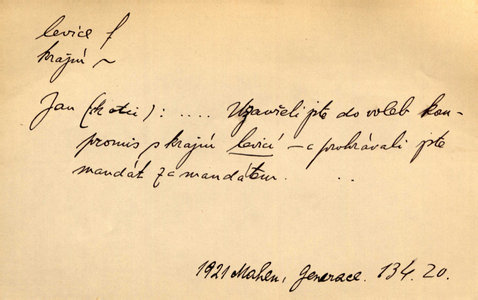 levice f
krajní ~
Jan : .... Uzavřeli jste do voleb kom-
promis s krajní levicí – a prohrávali jste
mandát za mandátem. . .
1921 Mahen, Generace. 134. 20.